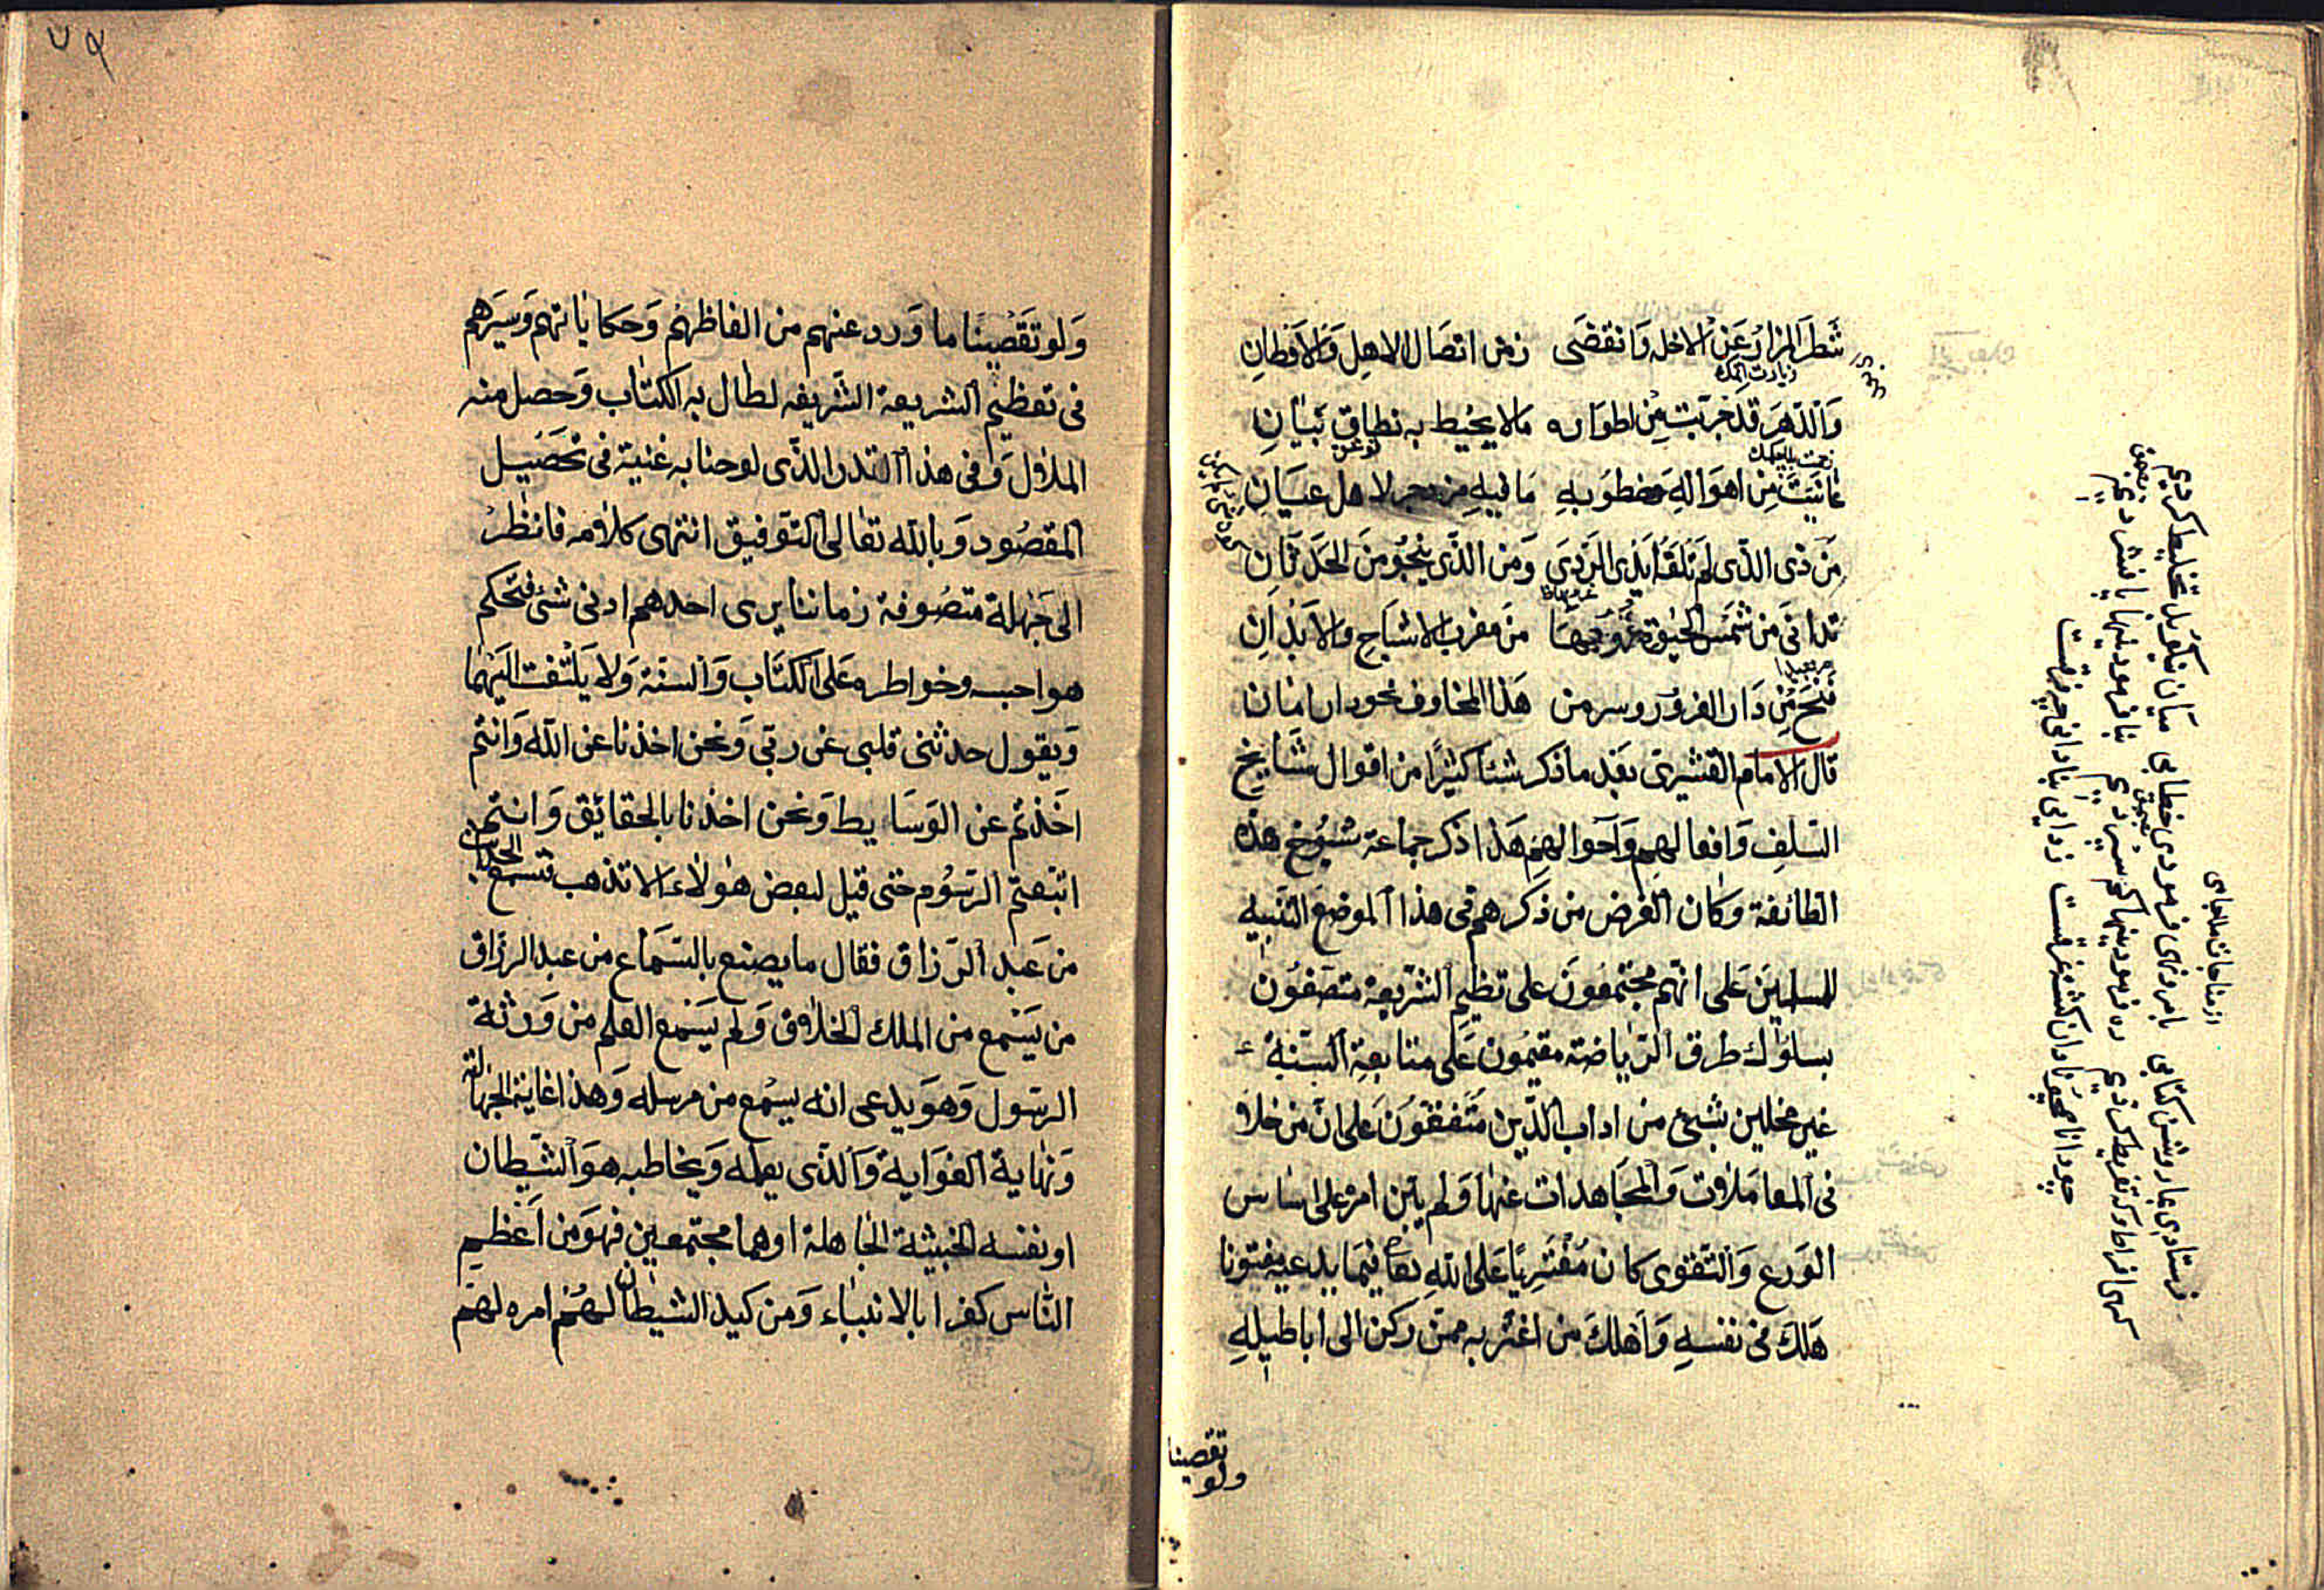 شَطَّ المَزارُ عَنِ الاخله وَانقضَى زمن اتصَال الاهلِ وَالاَوطانِ
زيارت الحكه
وَالدَّهرَ قد جربت مِن اطوَاره مَالا يحيُط به نطاق تبيَانِ
عَانيَتَ مِن اهوَالهِ وخطوُبهِ مَا فيهِ مزدجر لاهل عيَانِ
مَن ذى الذّى لَم تَلقَه ايَدِى الرّدِي وَمن الذّى ينجُو منَ الحَدَثَانِ
تدانىَ من شمسَ الحيوة غرُوبهَا من مغرب الاشبَاحِ والاَبدَانِ
فتَح مِن دَار الغرور وسر من هَذا المخاوف نحو دار امَان
قال الامام القشيرى بعَد ما ذكر شئا كثيرًا من اقوال مشَايخ
السّلفِ وَافعَالهِم وَاَحوالهِم هَذا ذكر جماعة شيُوخ هذه
الطائفة وكان الغرض من ذكرهم فى هذا الموضع التَنبيه
للمسلمينَ عَلى انّهم مجتمعُونَ على تظيم الشّرّيعة متصَفوُن
بسلوُك طرق الرّياضة مقيمُون عَلى متابعِة السّنة
غير مخلين بشئ من اداب الدّين متَفقوُنَ عَلى ان من خلا
فى المعَامَلات وَالمجَاهدات عنهَا وَلم يبن امره على اسَاس
الوَرع وَالتّقوى كان مُفتَرِيًا عَلى اللهِ تعَا فيمَا يدعيه مفتونا
هَلكَ فى نفسهِ وَاَهلكَ من اغتر به ممن ركن الى اباطيلِهِ
ولو تقصينا
از مناجات ملا جامى
فرستادى بما روشن كتابى بامر و نهى فرمودى خطابى ميان نيكو بد تخليط كرديم
كهى افراط و كه تفريط كرديم ره فرمودينها كم سپرديم بنا فرمودنيها پا فشرديم
چو دانا محو نادان كشته غرقست ز دانايى بنادانى چه فرقست
٧٩
وَلو تقَصّينَا ما وَرد عنهم من الفاظهم وَحكاياتهم وَسيَرهم
فى تعظيم الشريعة الشّريفه لطال به الكتاب وَحصل منه
الملال وَفى هذا القدر الذّى لوحنا به غنية فى تحَصيَل
المقصُود وَبالله تعَالى التّوَفيق انتهى كلامه فانظر
الى جَهلة متصُوفة زماننا يرى احدهم ادنى شئ فتحكم
هواجسه وخواطره عَلى الكتَاب وَالسنّة وَلا يَلتفت اليَهمَا
وَيقول حدثنى قلبى عن ربّى وَنحن اخذنا عن اللّه وَانتم
اَخَذتم عن الوَسَايط وَنحن اخذنا بالحقائق وَانتم
اتبَعتم الرّسُوم حتى قيل لبعض هولاء الا تذهب فتسمع الحديث
من عَبد الرَّزاق فقال ما يصنع بالسّمَاع من عبد الرزاق
من يَسَمع من الملك الخلاق وَلم يَسَمع العلم من وَرَثة
الرسَول وَهوَ يدعى انه يسمع من مرسله وَهذا غاية الجهالة
وَنهاية الغوَاية وَالذّى يعمله وَيخاطبه هوَ الشّيطان
او نفسه الخبيثة الجاهلة او هما مجتمعين فهوَ من اَعظم
النّاس كفرا بالانبيَاء وَمن كيد الشيطان لهم امره لهم